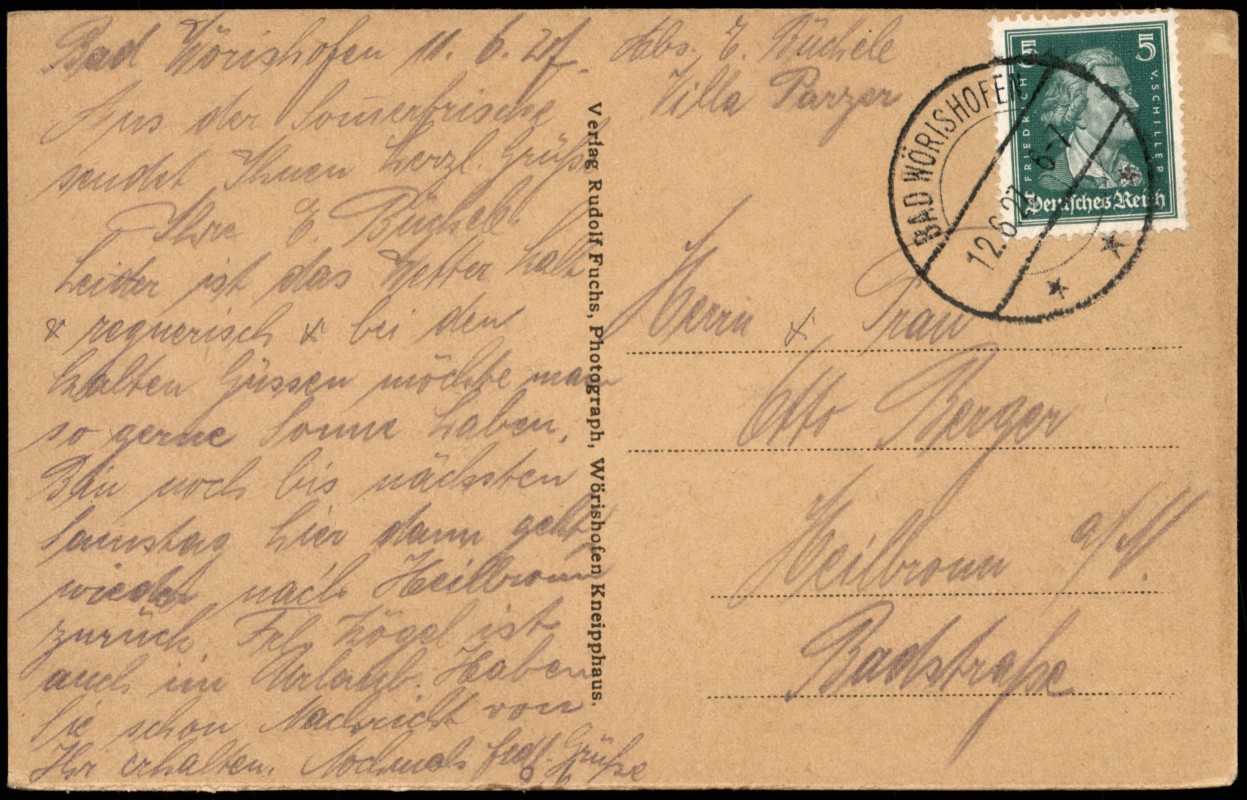 Bad Wörishofen 11.6.27.
Aus der Sommerfrische
sendet Ihnen herzl. Grüße
Ihre E. Büchele
Leider ist das Wetter kalt
& regnerisch & bei den
kalten Güssen möchte man
so gerne Sonne haben.
Bin noch bis nächsten
Samstag hier dann geht's
wieder nach Heilbronn
zurück. Frl. Kögel ist
auch im Urlaub. Haben
Sie schon Nachricht von
Ihr erhalten. Nochmals Grüße
Abs. E. Büchele
Villa Parzer
Verlag Rudolf Fuchs, Photograph, Wörishofen Kneipphaus.
5 5
FRIEDRICH V. SCHILLER
Deutsches Reich
BAD WÖRISHOFEN
12.6.27 6-7
Herrn & Frau
Otto Berger
Heilbronn a/N.
Badstraße